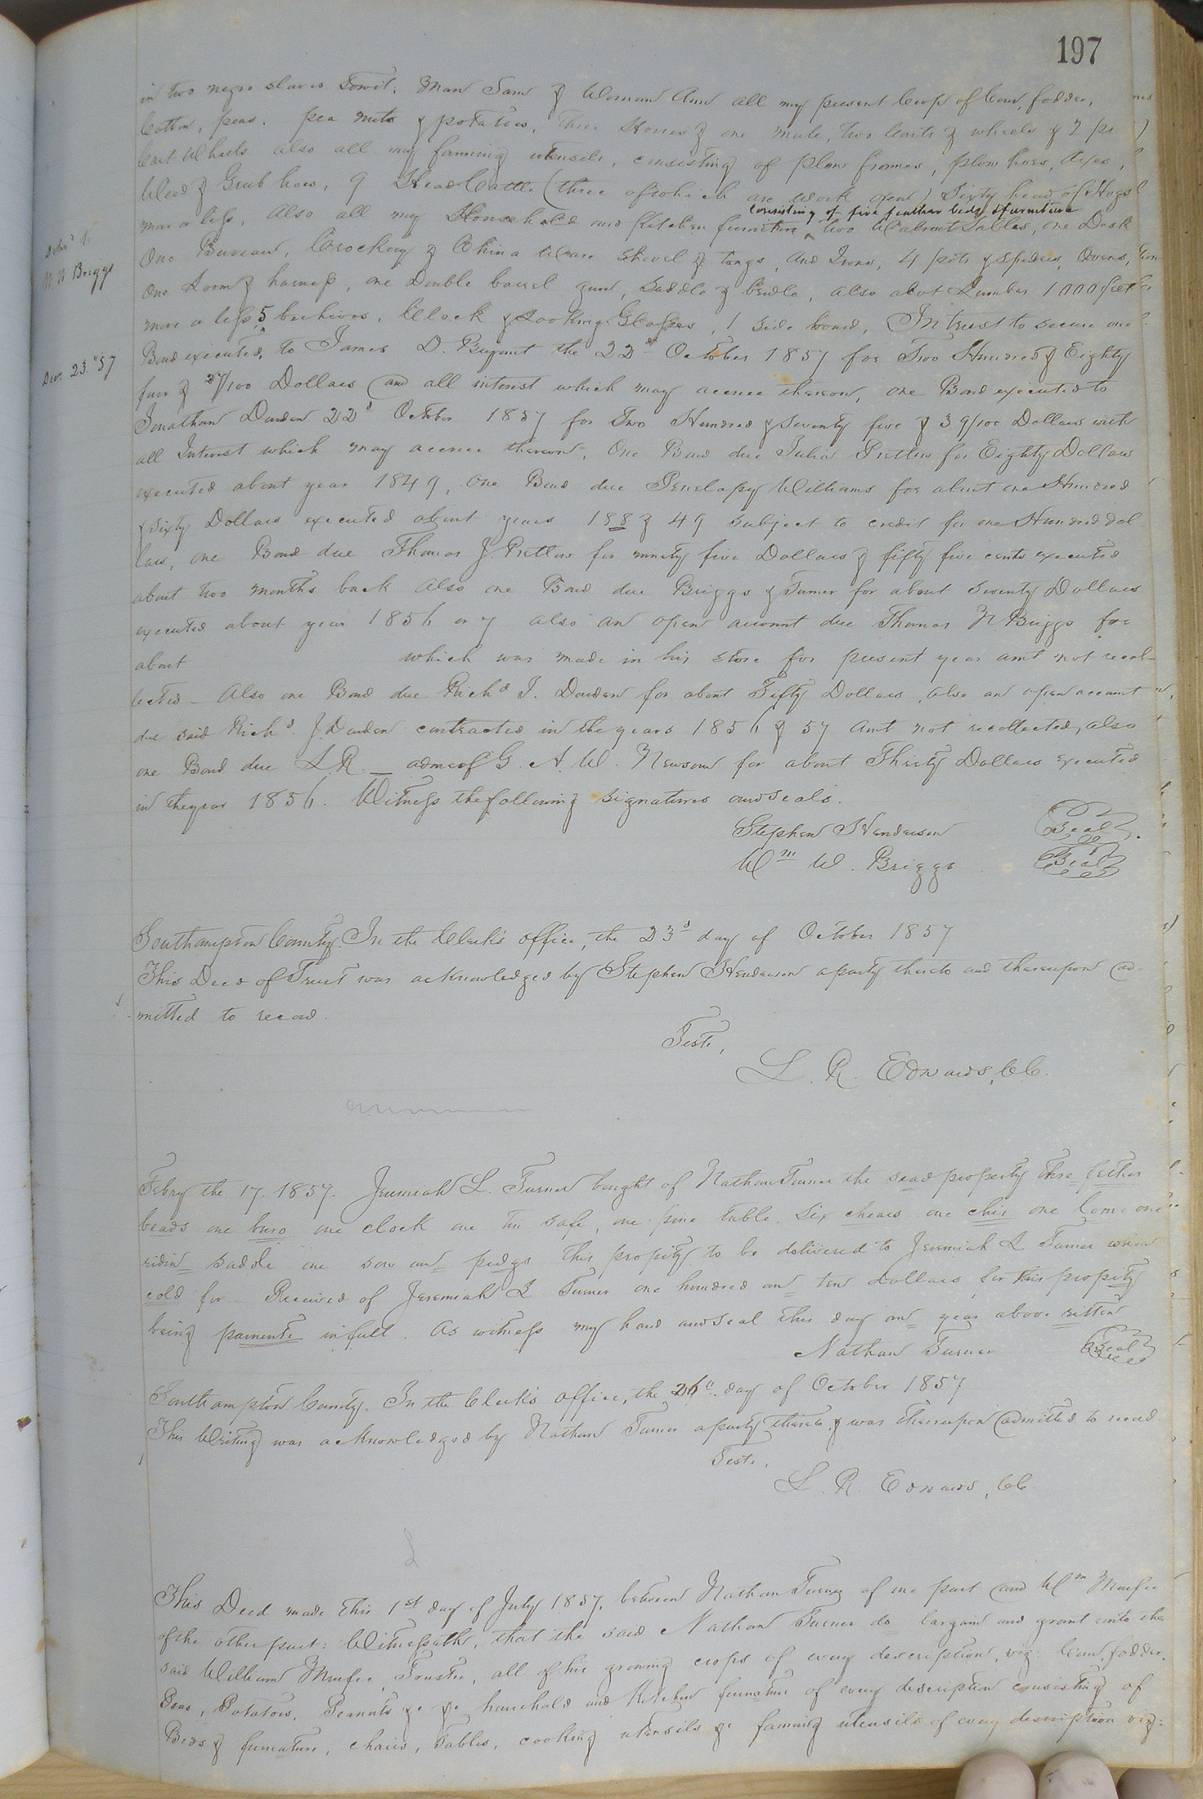 197
in two negro slaves Towit. Man Sam & Woman Ann all my present Crop of Corn, fodder,
Cotton, peas. pea nuts & potatoes, three Horses & one mule, two Carts & wheels & 2 pr
Cart Wheels also all my farming utensils, consisting of plow frames, plow hoes, Axes,
Weed & Grub hoes, 9 Head Cattle (three of which are work oxen) Sixty head of Hogs
consisting of five feather beds & furniture
more or less, Also all my Household and Kitchen furniture two Walnut Tables, one Desk
One Bureau, Crockery & China Ware Shovel & Tongs, And Irons, 4 pots & Spiders, Ovens,
One Loom & harness, one Double barrel gun, Saddle & bridle, also abot Lumber 1000 feet
more or less, 5 beehives, Clock & Looking Glasses, 1 Side board, In trust to secure one
Delivd to
W W Briggs
Decr 23 '57
Bond executed, to James D. Bryant the 22nd October 1857 for Two Hundred & Eighty
four & 37/100 Dollars and all interest which may accrue thereon, one Bond executed to
Jonathan Darden 22d October 1857 for Two Hundred & Seventy five & 39/100 Dollars with
all Interest which may accrue thereon, One Bond due Julia Pretlow for Eighty Dollars
executed about year 1849, One Bond due Penelapy Williams for about one Hundred
& Sixty Dollars executed about years 188 & 49 subject to credit for one Hundred dol
lars, one Bond due Thomas J Pretlow for ninety five Dollars & fifty five cents executed
about two months back Also one Bond due Briggs & Turner for about Seventy Dollars
executed about year 1856 or 7 also an open account due Thomas N Briggs for
about which was made in his store for present year amt not recol-
lected - Also one Bond due Richd J. Darden for about Fifty Dollars, also an open account
due said Richd J. Darden contracted in the years 1856 & 57 Amt not recollected, also
one Bond due L.R. _ admr of G. A. W. Newsom for about Thirty Dollars executed
in the year 1856. Witness the following signatures and seals.
Stephen Henderson Seal
Wm W. Briggs Seal
Southampton County. In the Clerk's office, the 23d day of October 1857
This Deed of Trust was acknowledged by Stephen Henderson a party thereto and thereupon ad-
mitted to record.
Teste,
L. R. Edwards, CC.
Febry the 17. 1857. Jeremiah L. Turner bought of Nathan Turner the sead property three fether
beads one buro one clock one tin safe, one pine table. Six chears one chis one Lome one
ridin saddle one sow an pedgs this propity to be delivered to Jeremiah L Turner when
cold for - Received of Jeremiah L Turner one hundred an ten dollars for this propity
being pamente in full. As witness my hand and seal this day an year above ritten
Nathan Turner Seal
Southampton County. In the Clerk's office, the 26th day of October 1857
This Writing was acknowledged by Nathan Turner a party thereto, & was thereupon admitted to record
Teste.
L. R. Edwards, CC
This Deed made this 1st day of July 1857. between Nathan Turner of one part and Wm Murfee
of the other part: Witnesseth, that the said Nathan Turner do bargain and grant unto the
said William Murfee, Trustee, all of his growing crops of every description, viz: Corn, fodder.
Peas, Potatoes, Peanuts &c &c household and Kitchen furniture of every description consisting of
Beds & furniture, chairs, Tables, cooking utensils &c farming utensils of every description viz: